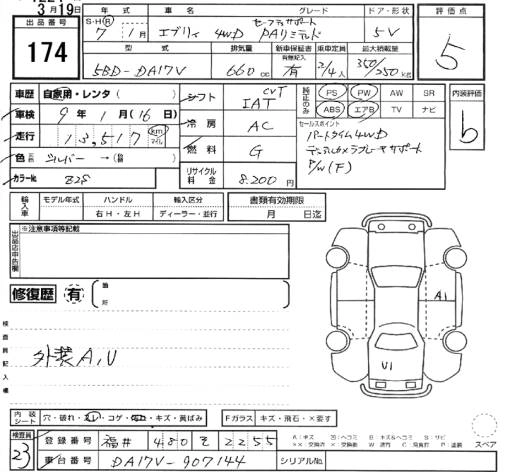 3月19日
出品番号 174
年式 車名 グレード ドア・形状
S・H・R 7年 1月 エブリィ 4WD セーフティサポート PAリミテッド 5V
評価点 5
型式 排気量 新車保証書 有無記入 乗車定員 最大積載量
5BD-DA17V 660cc 有 2/4人 350/250kg
車歴 自家用・レンタ( )
車検 9年 1月(16日)
走行 13,517 km マイル
色 シルバー →(
カラーNo. Z2S
シフト CVT IAT
冷房 AC
燃料 G
リサイクル料金 8.200円
純正のみ PS PW AW SR
ABS エアB TV ナビ
セールスポイント
パートタイム4WD
デュアルカメラブレーキサポート
P/W(F)
内装評価 b
輸入車 モデル年式 ハンドル 輸入区分
右H・左H ディーラー・並行
書類有効期限
月 日迄
出品店申告欄 ※注意事項等記載
修復歴 有
検査員記入欄
外装A,U
A1
U1
内装シート 穴・破れ・スレ・コゲ・汚れ・キズ・黄ばみ
Fガラス キズ・飛石・×要す
検査員 23
登録番号 福井 480 そ 2255
車台番号 DA17V-907144
シリアルNo.
A:キズ
スペア